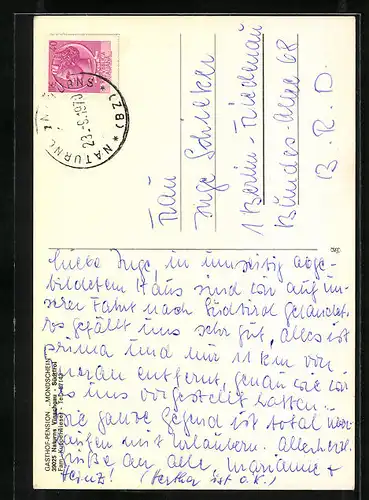 NATURNS (BZ)
23.-9.1970
Frau
Inge Schieker
1 Berlin-Friedenau
Bundes-Allee 68
B. R. D.
Liebe Inge, in umseitig abge-
bildetem Haus sind wir auf un-
serer Fahrt nach Südtirol gelandet.
Es gefällt uns sehr gut, alles ist
prima und nur 11 km von
Meran entfernt, genau wie wir
es uns vorgestellt hatten.
Die ganze Gegend ist total
mit Urlaubern. Allerherzl.
Grüße an alle Marianne +
Heinz! (Hertha ist o. k.)
GASTHOF-PENSION „MONDSCHEIN“
39025 Naturns Vinschgau - Südtirol